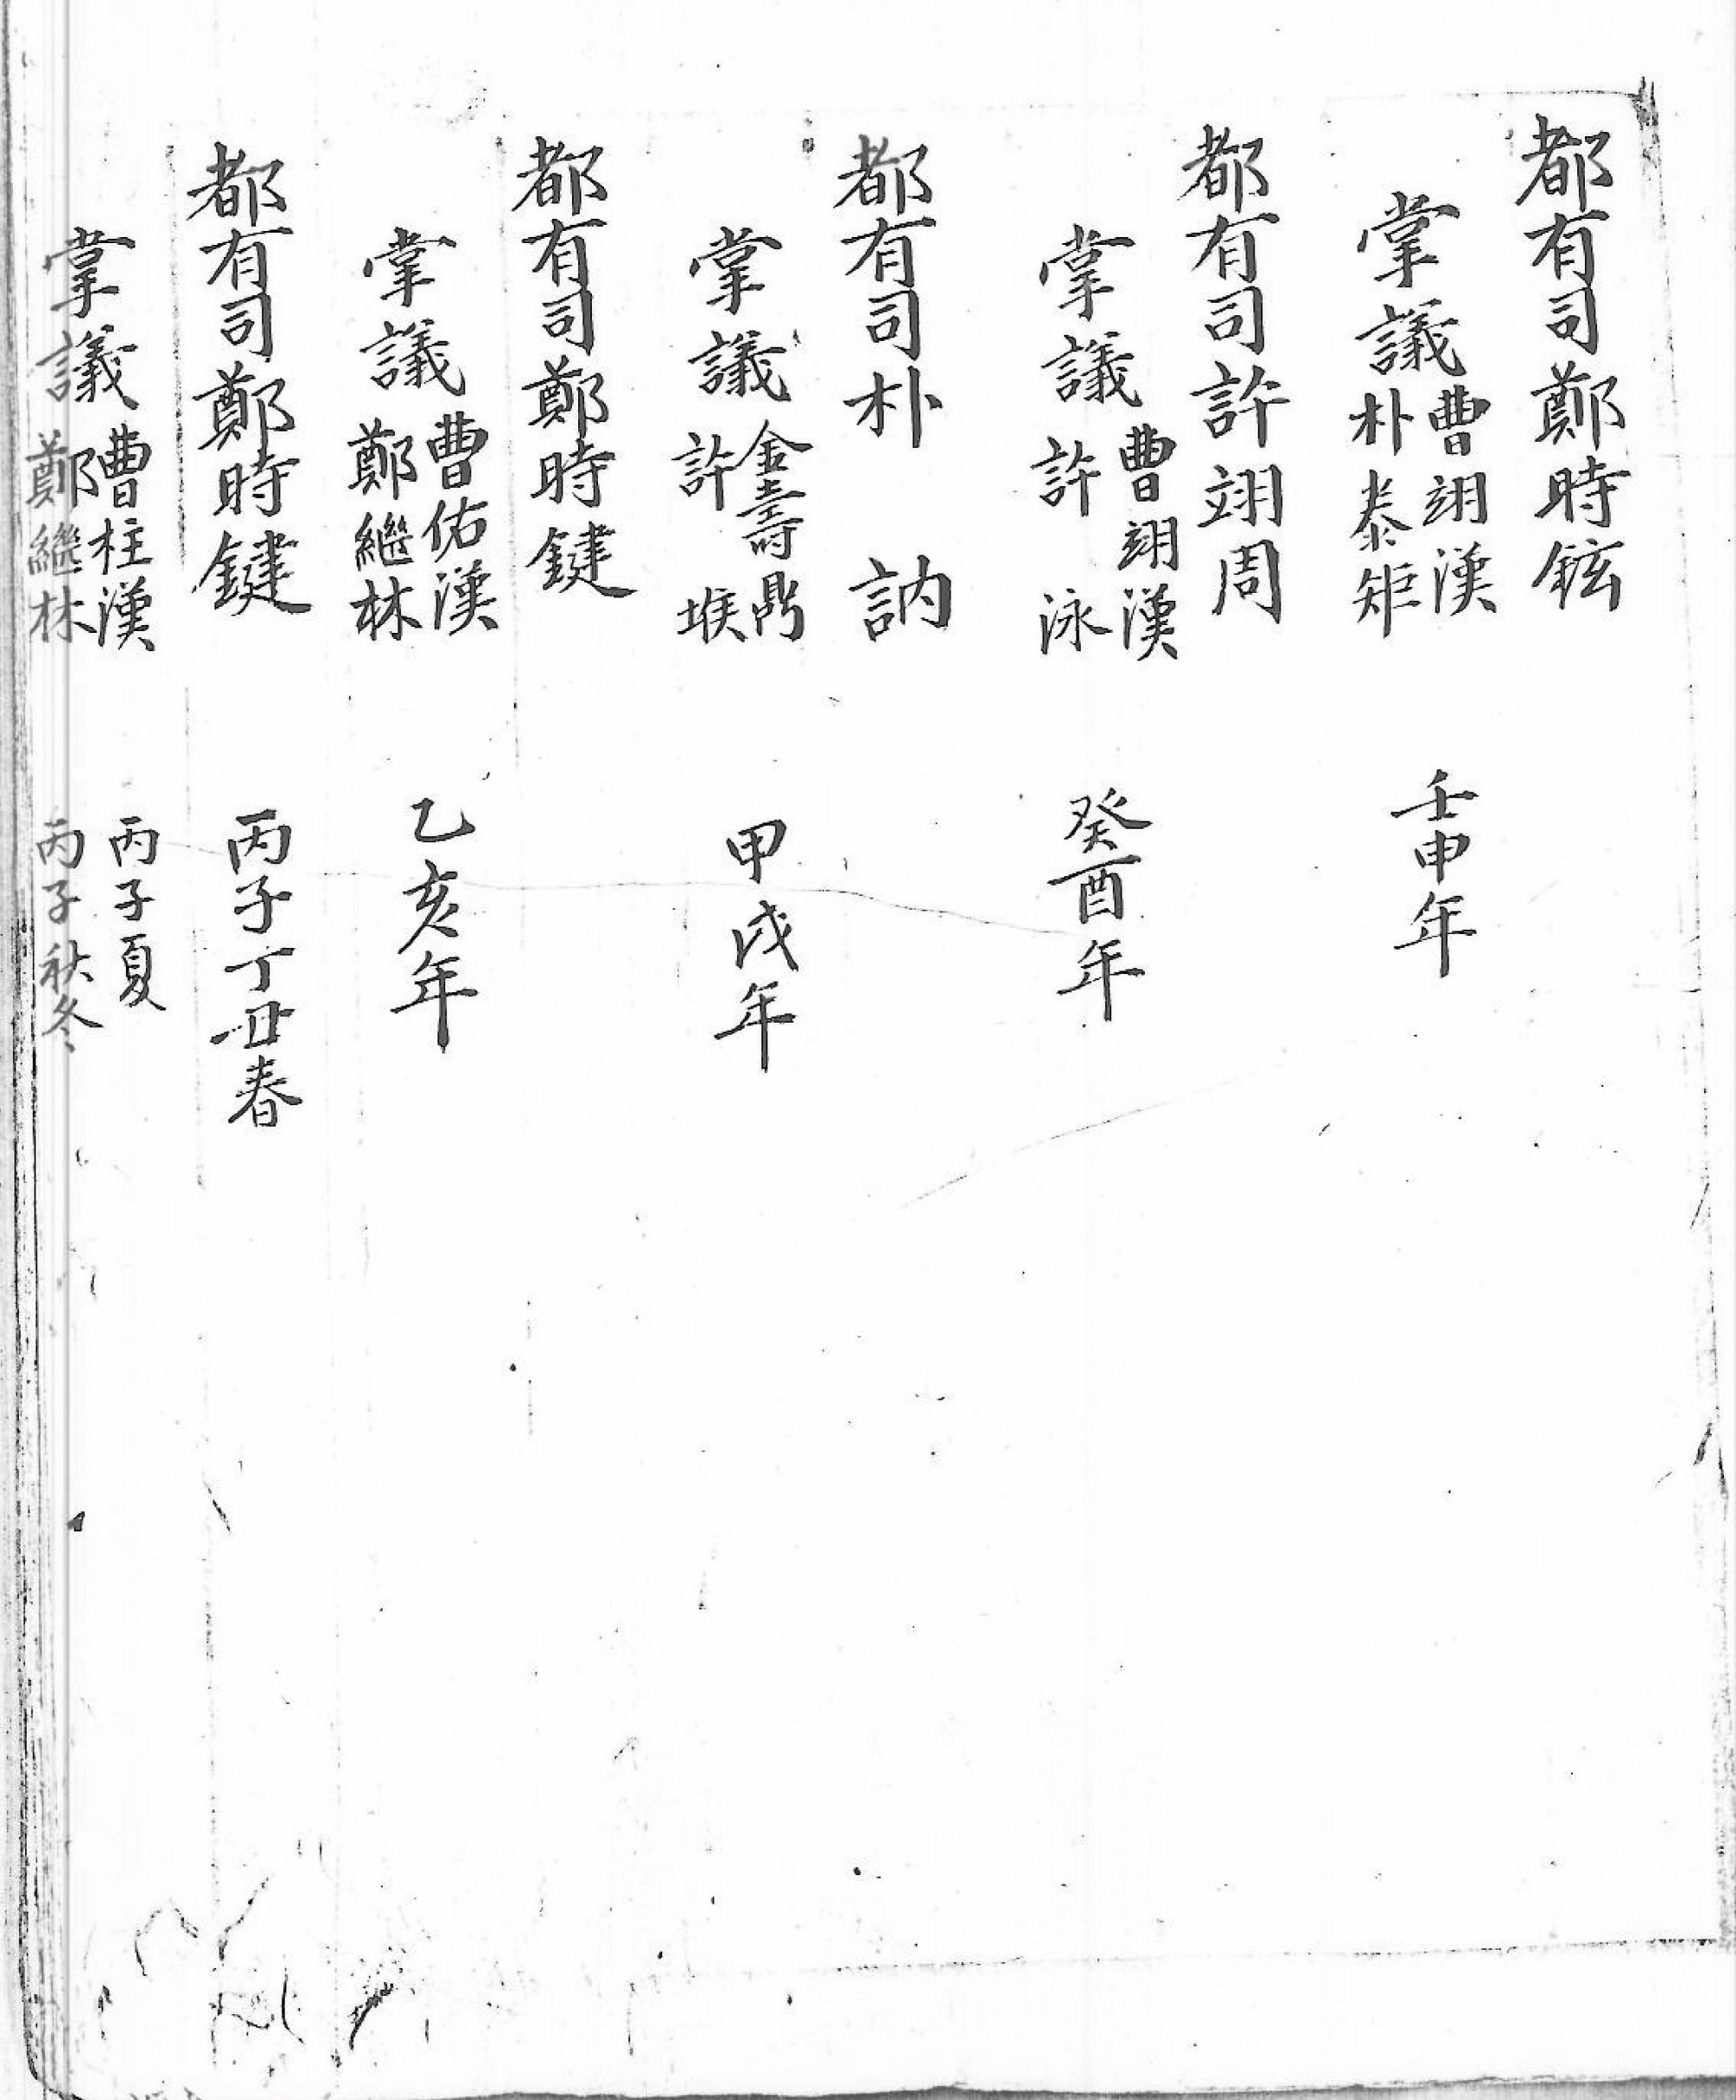 都有司鄭時鉉
掌議曹翊漢
朴泰矩
壬申年
都有司許翊周
掌議曹翊漢
許泳
癸酉年
都有司朴訥
掌議金壽鼎
許堠
甲戌年
都有司鄭時鍵
掌議曹佑漢
鄭繼林
乙亥年
都有司鄭時鍵
丙子丁丑春
掌議曹柱漢
丙子夏
鄭繼林
丙子秋冬